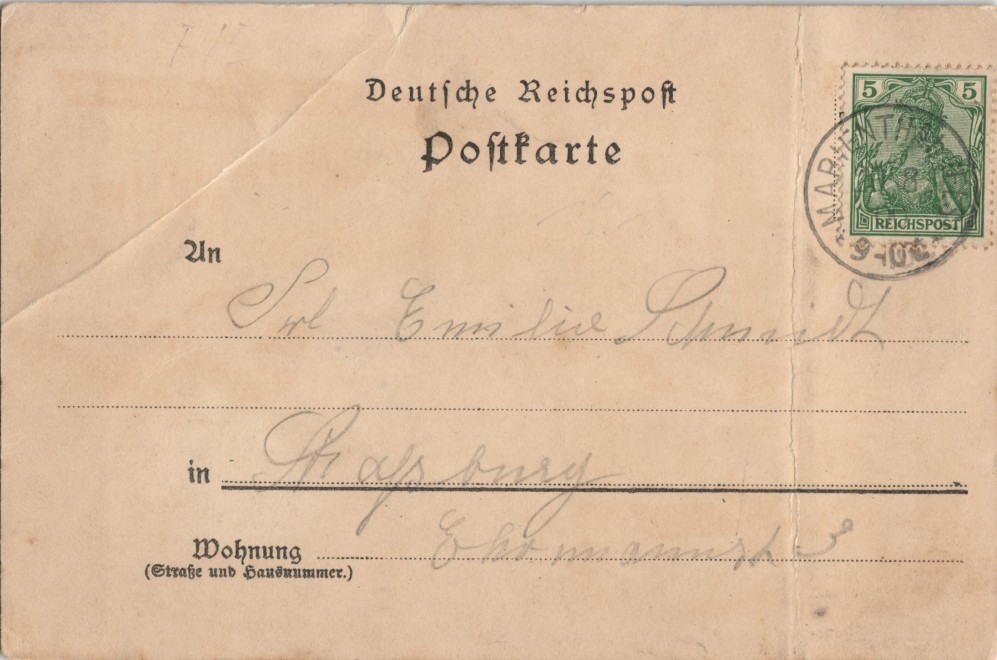 5 5
REICHSPOST
Deutsche Reichspost
Postkarte
An
Frl Emilie Schmidt
in Straßburg
Wohnung
(Straße und Hausnummer.)
3